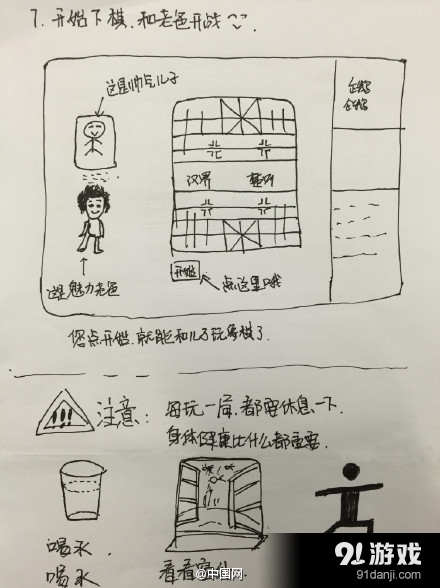 7. 开始下棋，和老爸开战
这是帅气儿子
汉界 楚河
开始 点这里哦
这是魅力老爸
您点开始，就能和儿子玩象棋了.
!!! 注意: 每玩一局，都要休息一下.
身体健康比什么都重要.
喝水.
喝水
看看窗外
@中国网
91游戏
91danji.com